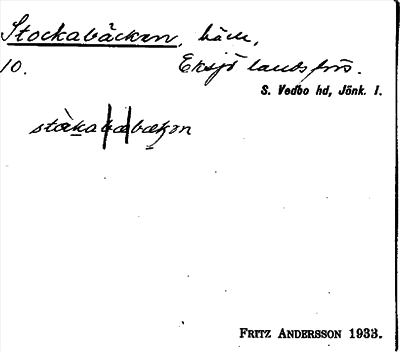 Stockabäcken, bäck,
10. Eksjö landsförs.
S. Vedbo hd, Jönk. l.
FRITZ ANDERSSON 1933.